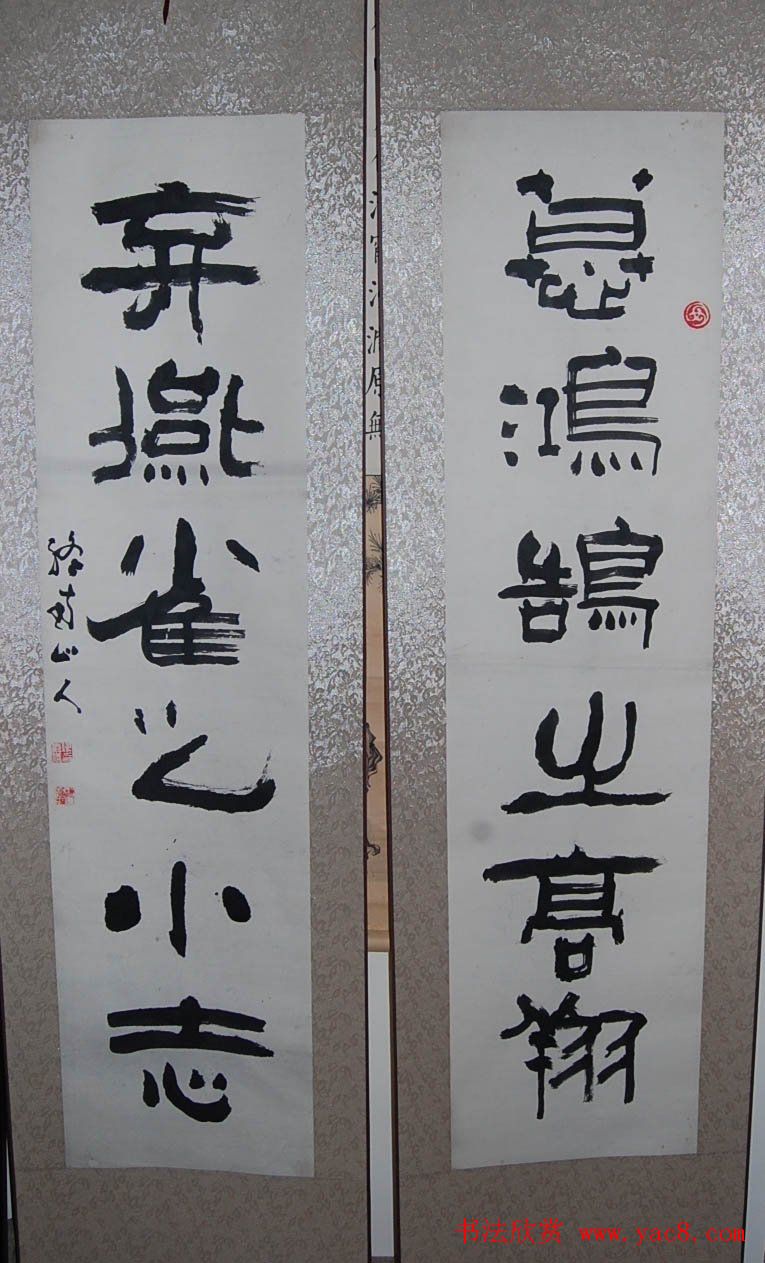 慕鴻鵠之高翔
棄燕雀之小志
山人
書法欣赏 www.yac8.com